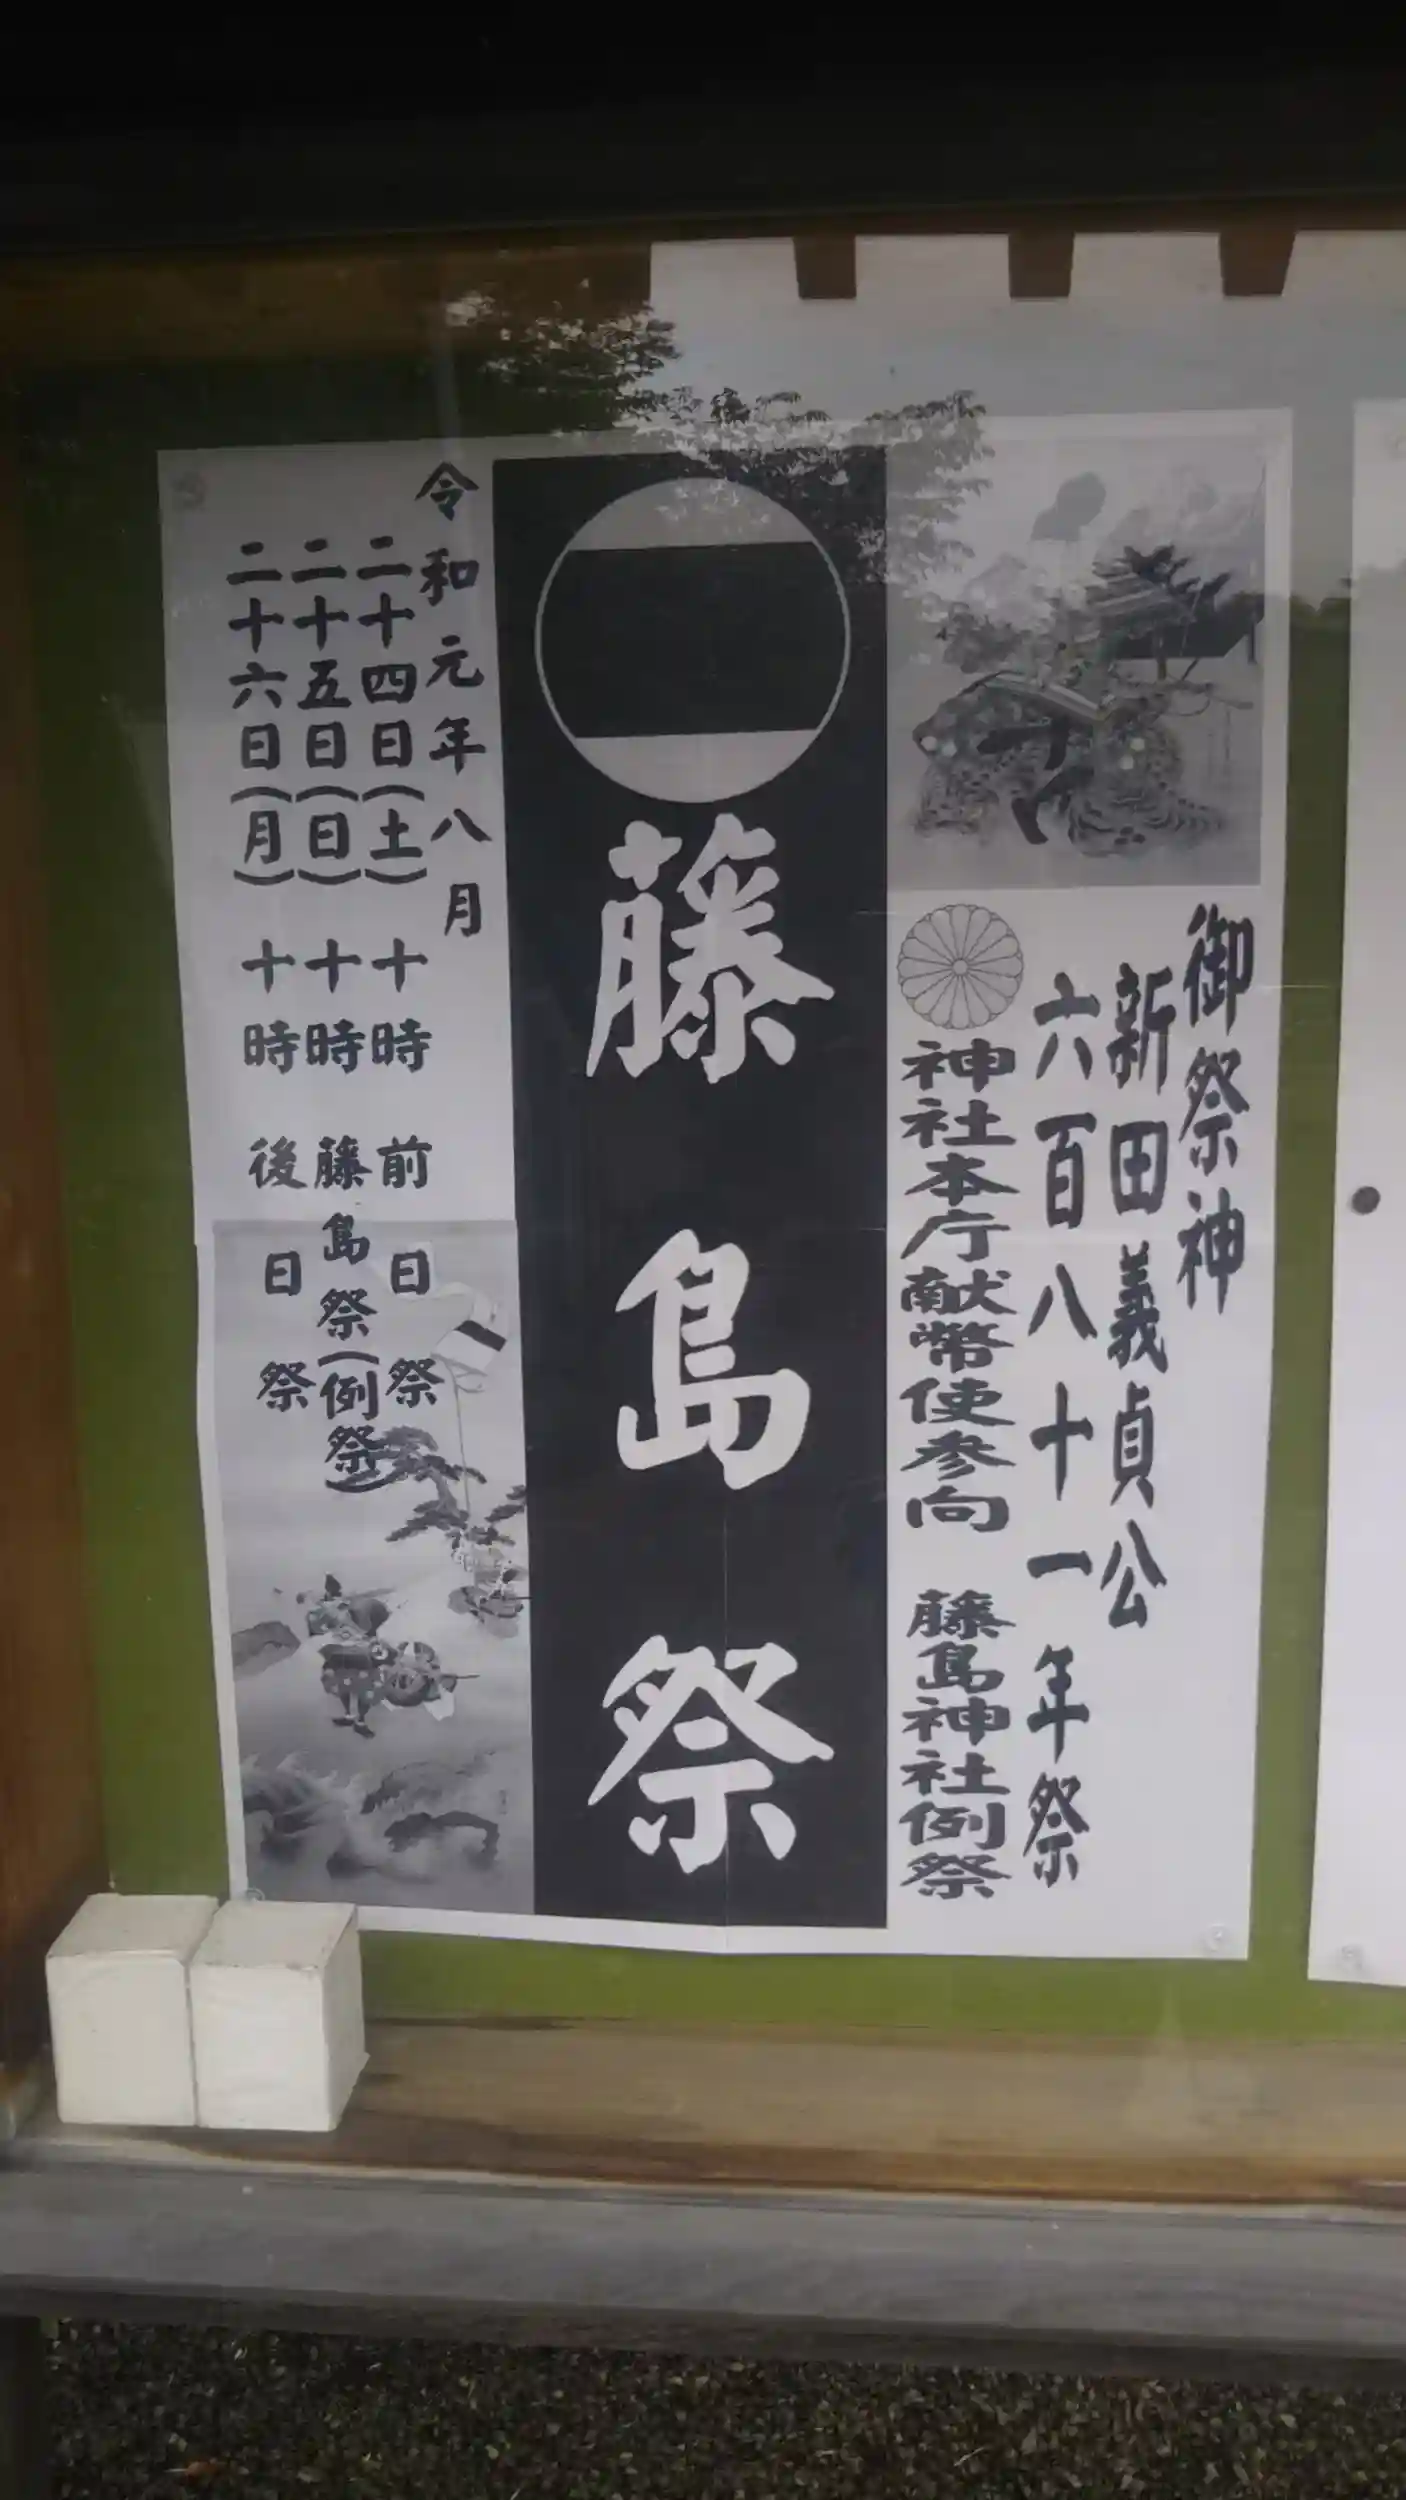 御祭神
新田義貞公
六百八十一年祭
神社本庁献幣使参向 藤島神社例祭
藤島祭
令和元年八月
二十四日(土) 十時 前日祭
二十五日(日) 十時 藤島祭(例祭)
二十六日(月) 十時 後日祭